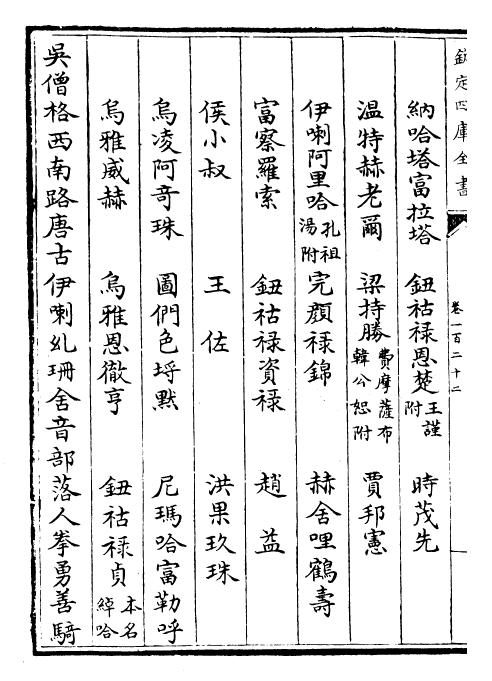 欽定四庫全書
卷一百二十二
納哈塔富拉塔 鈕祜祿恩楚 王謹附 時茂先
温特赫老爾 梁持勝 費摩薩布 韓公恕附 賈邦憲
伊喇阿里哈 孔祖湯附 完顔祿錦 赫舍哩鶴壽
富察羅索 鈕祜祿資祿 趙益
侯小叔 王佐 洪果玖珠
烏凌阿竒珠 圖們色埒黙 尼瑪哈富勒呼
烏雅威赫 烏雅恩徹亨 鈕祜祿貞 本名綽哈
吳僧格西南路唐古伊喇乣珊舍音部落人拳勇善騎